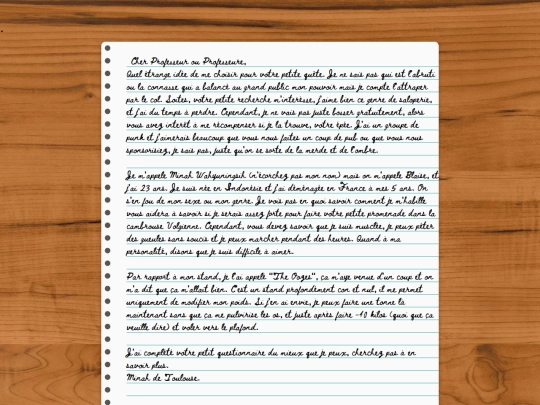 Cher Professeur ou Professeure,
Quel étrange idée de me choisir pour votre petite quête. Je ne sais pas qui est l'abruti
ou la connasse qui a balancé au grand public mon pouvoir mais je compte l'attraper
par le col. Soites, votre petite recherche m'intéresse, j'aime bien ce genre de saloperie,
et j'ai du temps à perdre. Cependant, je ne vais pas juste bosser gratuitement, alors
vous avez intérêt à me récompenser si je la trouve, votre épée. J'ai un groupe de
punk et j'aimerais beaucoup que vous nous faites un coup de pub ou que vous nous
sponsorisiez, je sais pas, juste qu'on se sorte de la merde et de l'ombre.
Je m'appele Minah Wahyuningsih (n'écorchez pas mon nom) mais on m'appele Blaise, et
j'ai 23 ans. Je suis née en Indonésie et j'ai déménagée en France à mes 5 ans. On
s'en fou de mon sexe ou mon genre. Je vois pas en quoi savoir comment je m'habille
vous aidera à savoir si je serais assez forte pour faire votre petite promenade dans la
cambrouse Volpienne. Cependant, vous devez savoir que je suis musclée, je peux péter
des gueules sans soucis et je peux marcher pendant des heures. Quand à ma
personalité, disons que je suis difficile à aimer.
Par rapport à mon stand, je l'ai appelé "The Oozes", ça m'aye venue d'un coup et on
m'a dit que ça m'allait bien. C'est un stand profondément con et nul, il me permet
uniquement de modifier mon poids. Si j'en ai envie, je peux faire une tonne là
maintenant sans que ça me pulvérise les os, et juste après faire -10 kilos (quoi que ça
veuille dire) et voler vers le plafond.
J'ai complété votre petit questionnaire du mieux que je peux, cherchez pas à en
savoir plus.
Minah de Toulouse.